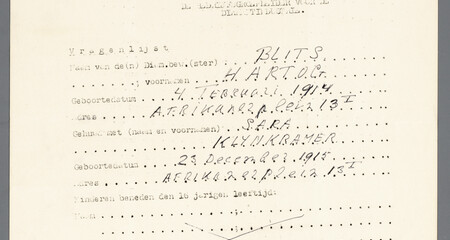 V r a g e n l i j s t
Naam van de(n) Diam.bew.(ster) BLITS
; voornamen HARTOG
Geboortedatum 4 Februari 1914
Adres AFRIKANERplein 13 I
Gehuwd met (naam en voornamen) SARA
KLYNKRAMER
Geboortedatum 23 December 1915
Adres AFRIKANERplein 13 I
Kinderen beneden den 16 jarigen leeftijd:
Naam